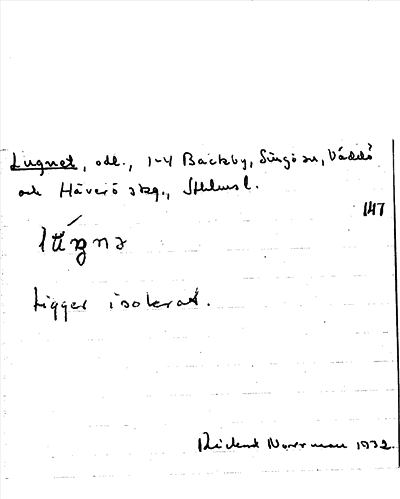 Lugnet, odl., 1-4 Backby, Singö sn, Väddö
och Häverö skg., Sthlms l.
147
ligger isolerat.
Rickard Norrman 1932.